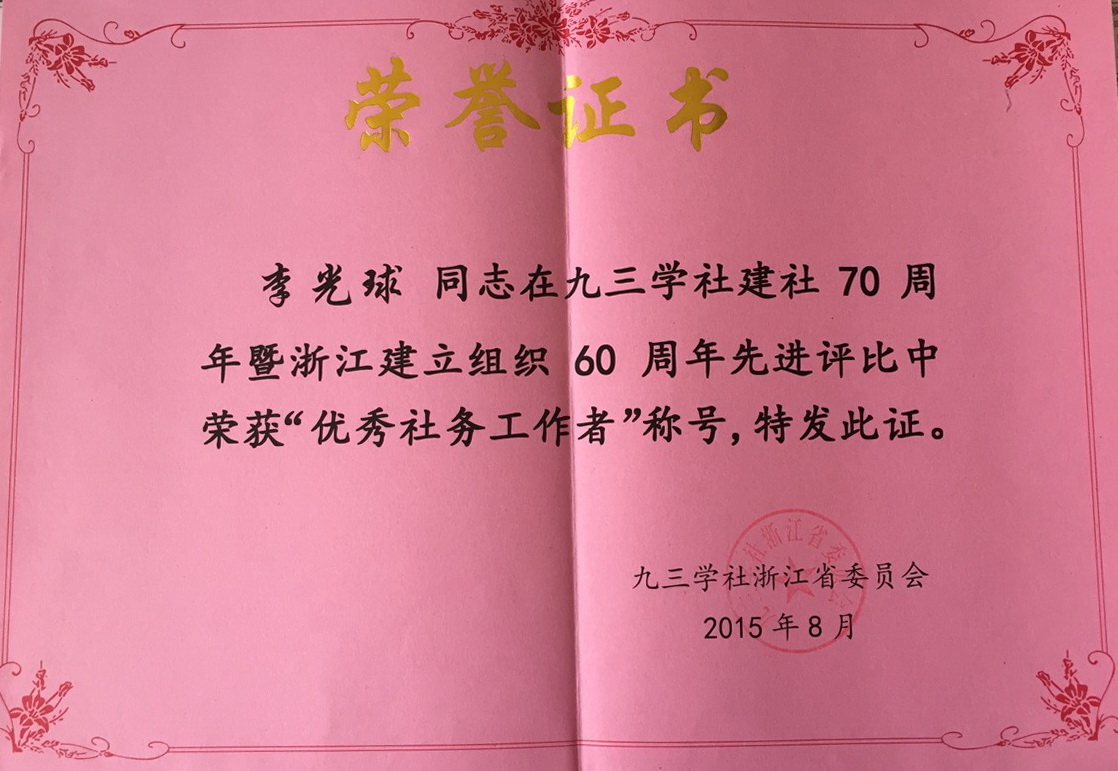 荣誉证书
李光球 同志在九三学社建社 70 周
年暨浙江建立组织 60 周年先进评比中
荣获“优秀社务工作者”称号,特发此证。
九三学社浙江省委员会
2015年8月